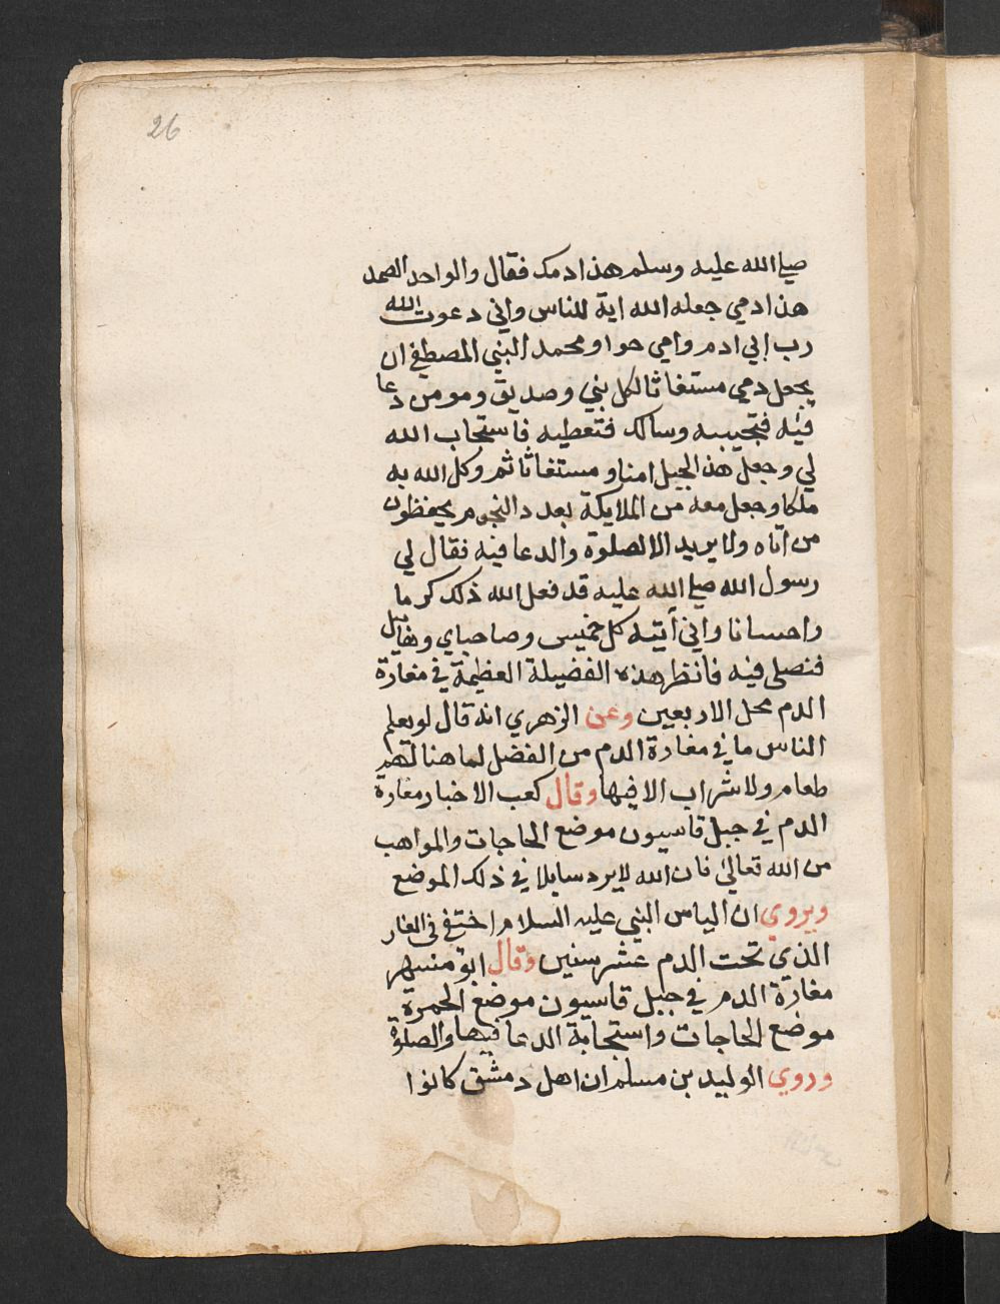 26
صلي الله عليه وسلم هذا دمك فقال والواحد الصمد
هذا دمي جعله الله اية للناس واني دعوت الله
رب ابي ادم وامي حوا ومحمد النبي المصطفي ان
يجعل دمي مستغاثا لكل نبي وصديق ومومن دعا
فيه فتجيبه وسالك فتعطيه فاستجاب الله
لي وجعل هذا الجبل امنا ومستغاثا ثم وكل الله به
ملكا وجعل معه من الملايكة بعدد النجوم يحفظون
من اتاه ولا يريد الا الصلوة والدعا فيه فقال لي
رسول الله صلي الله عليه قد فعل الله ذلك كرما
واحسانا واني أتيه كل خميس وصاحباي وهابيل
فنصلي فيه فانظر هذه الفضيلة العظيمة في مغارة
الدم محل الاربعين وعن الزهري انه قال لو يعلم
الناس ما في مغارة الدم من الفضل لما هنا لهم
طعام ولا شراب الا فيها وقال كعب الاخبار مغارة
الدم في جبل قاسيون موضع الحاجات والمواهب
من الله تعالي فان الله لا يرد سايلا في ذلك الموضع
ويروي ان الياس النبي عليه السلام اختفي في الغار
الذي تحت الدم عشر سنين وقال ابو مسهر
مغارة الدم في جبل قاسيون موضع الحمرة
موضع الحاجات واستجابة الدعا فيها والصلوة
وروي الوليد بن مسلم ان اهل دمشق كانوا